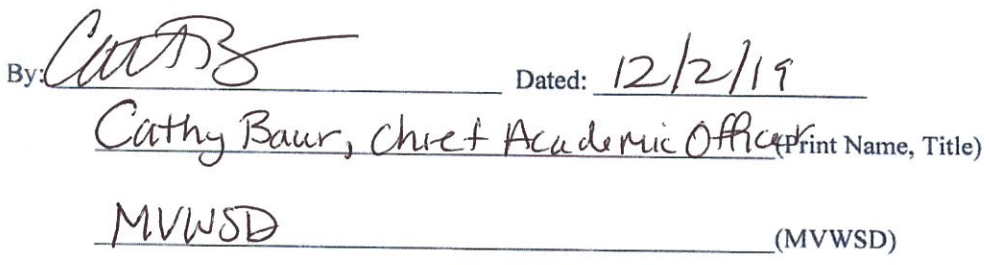 By: Dated: 12/2/19
Cathy Baur, Chief Academic Officer (Print Name, Title)
MVWSD (MVWSD)